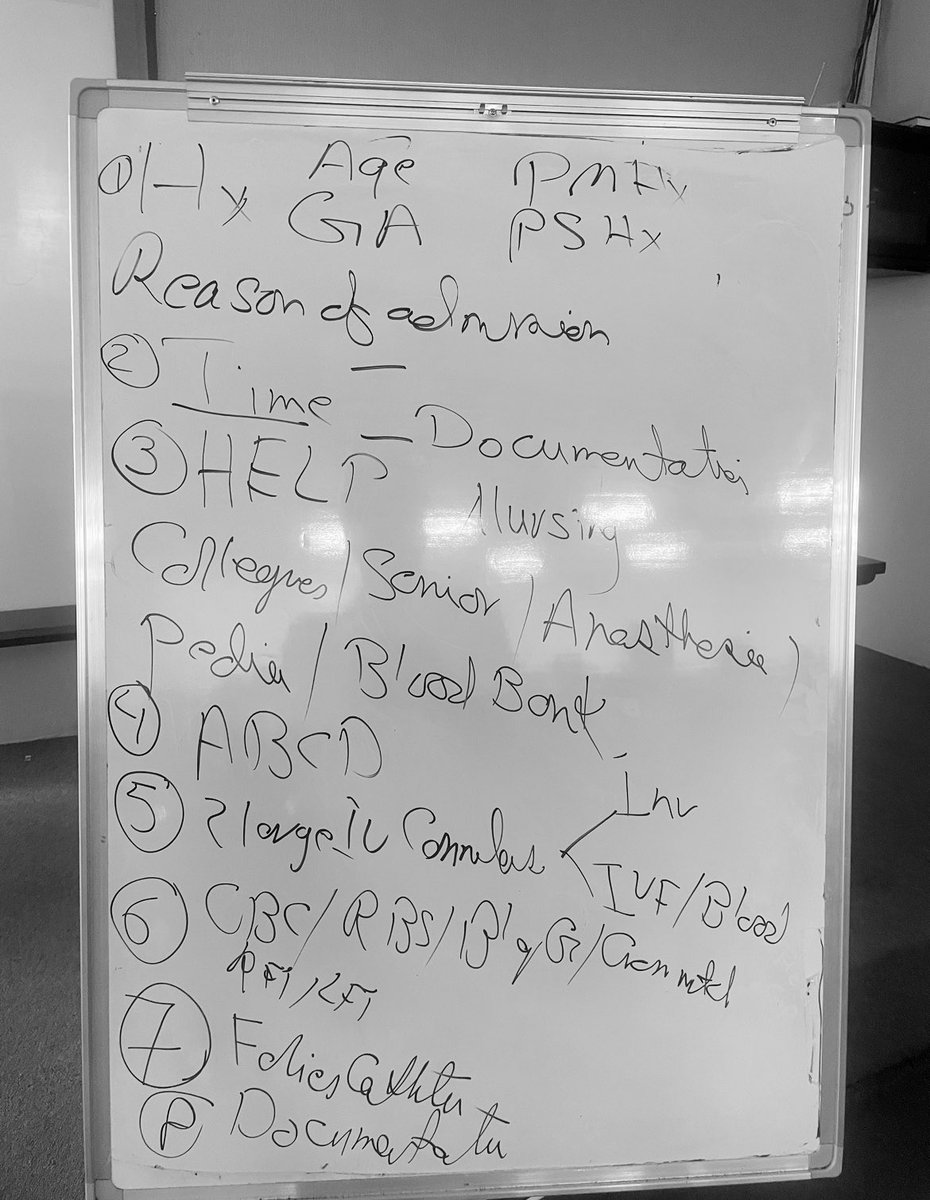 ① Hx Age PMHx
GA PSHx
Reason of admission
② Time —
— Documentation
③ HELP Nursing
Collegues / Senior / Anasthesia /
Pedia / Blood Bank
④ ABCD
⑤ 2 large IV Cannulas Inv
IVF/Blood
⑥ CBC/RBS/Bl g G/
RFT/LFT
⑦ Folies Cathtu
⑧ Documentatu